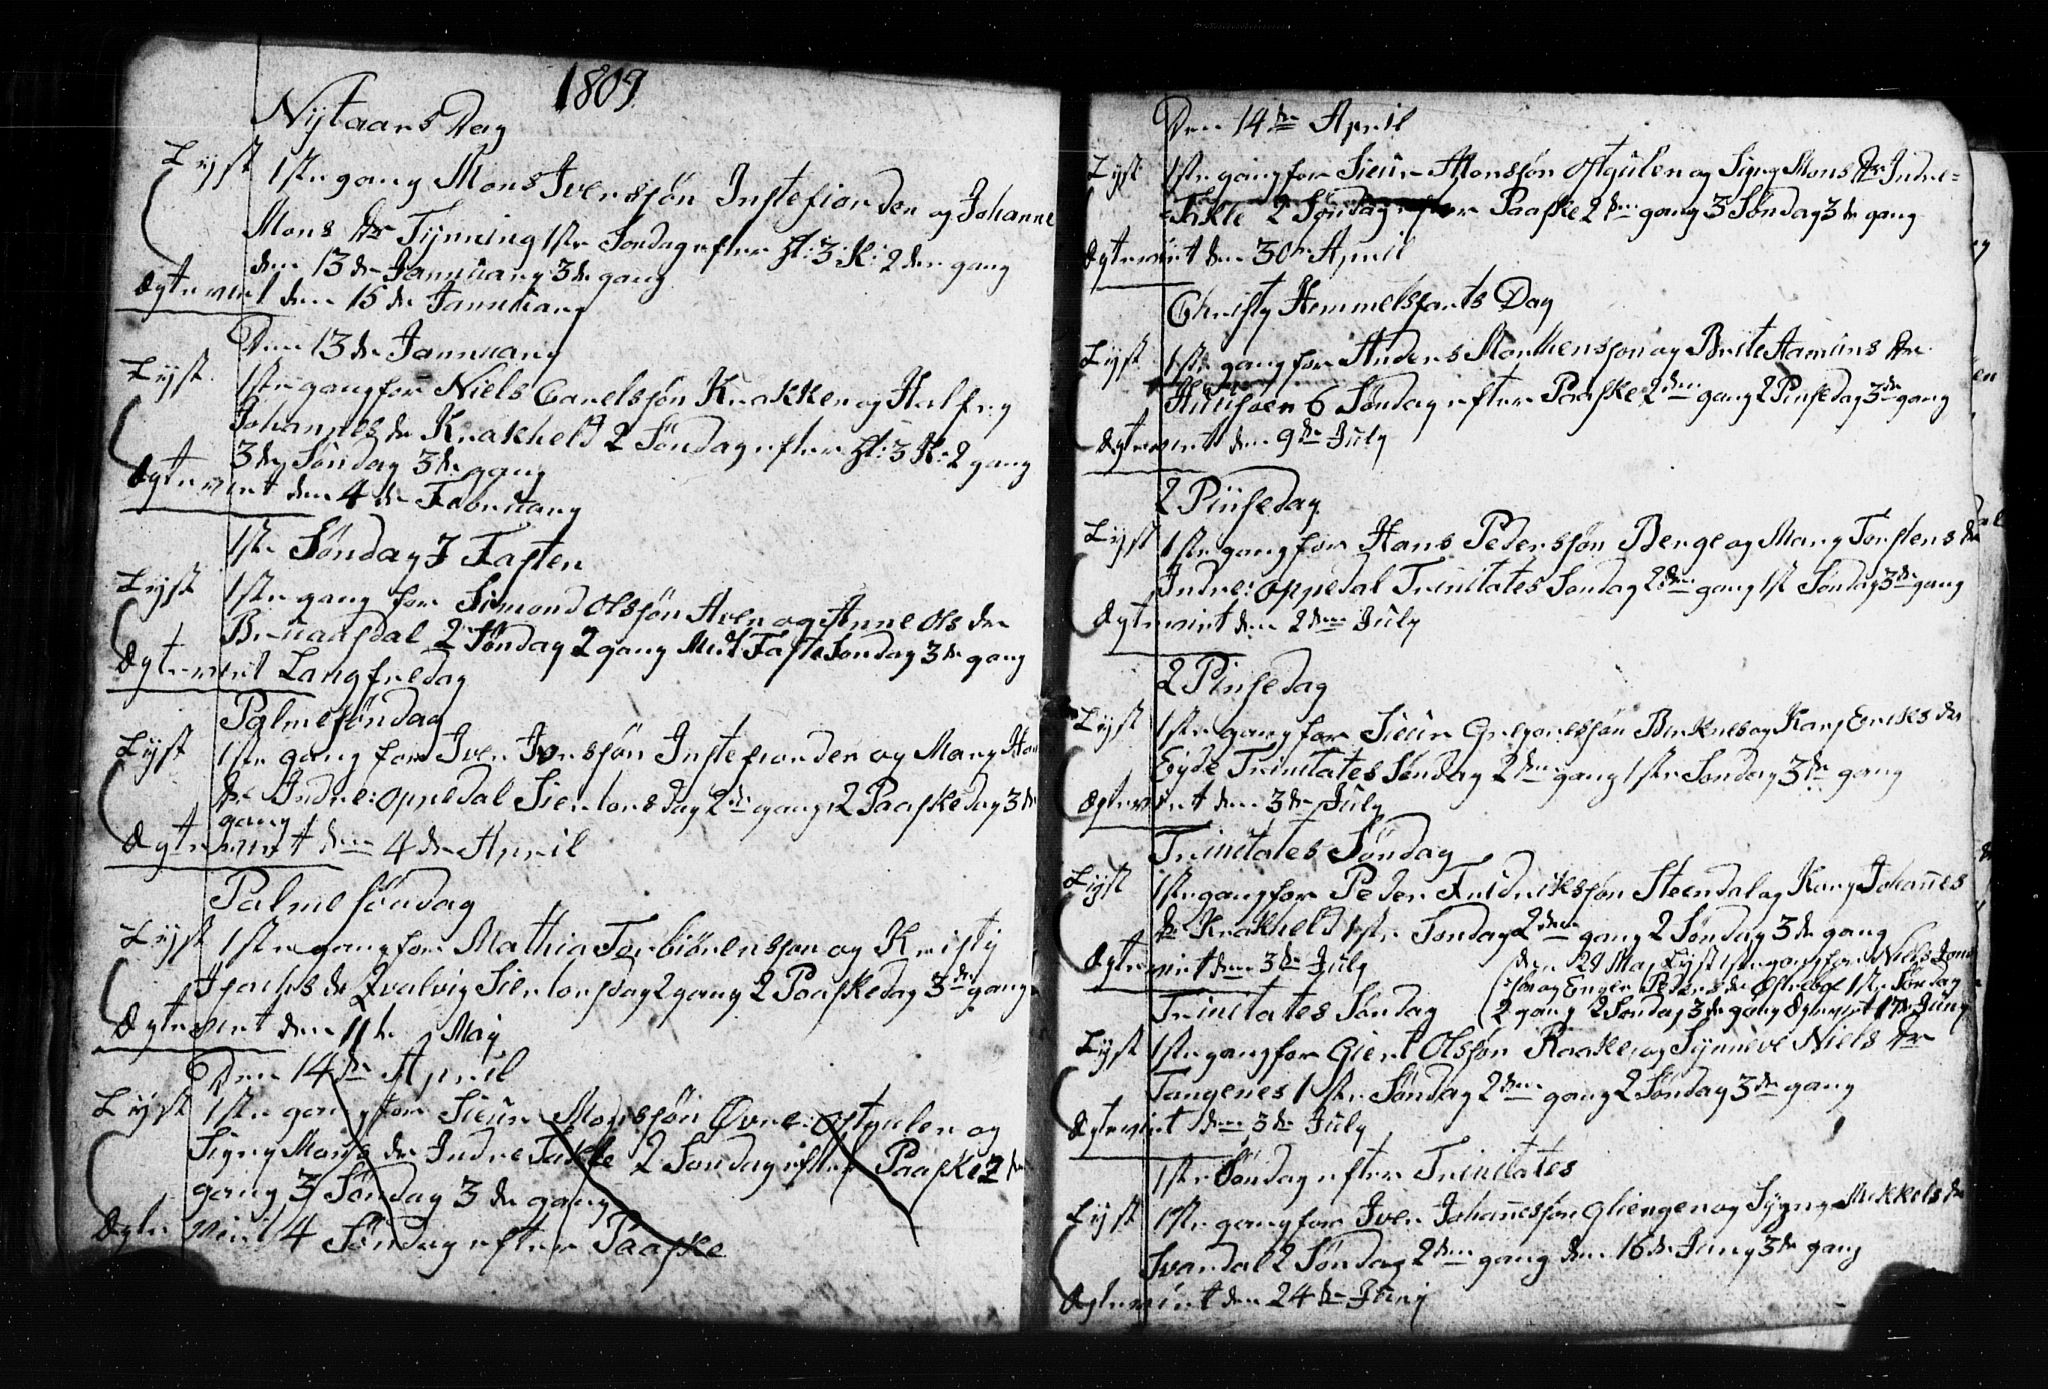 1809
Nÿtaars Dag
Lyst 1ste gang Mons Iverssøn Instefiorden og Johanne
Mons dtr Tynning 1ste Søndag efter H: 3: K: 2den gang
den 13de Jannuarÿ 3de gang
Ægteviet den 15de Jannuarÿ
Den 13de Jannuarÿ
Lyst 1ste gang for Niels Carelssøn Krakken og Kalfrÿ
Johannes dr Krakheld 2 Søndag efter H: 3 K: 2 gang
3de Søndag 3de gang
Ægteviet den 4de Februarÿ
1ste Søndag J Fasten
Lyst 1ste gang for Simond Olssøn Aven og Anne Ols dr
Bruaasdal 2 Søndag 2 gang Mid Faste Søndag 3de gang
Ægteviet Langfredag
Palmesøndag
Lyst 1ste gang for Iver Iverssøn Instefiorden og Marÿ
dtr Indre: Oppedal Siertorsdag 2de gang 2 Paaskedag 3de
gang
Ægteviet den 4de April
Palmesøndag
Lyst 1ste gang for Mathia Torbiørenssøn og Kristÿ
Isachs dr Qvalvig Siertorsdag 2 gang 2 Paaskedag 3de gang
Ægteviet den 11te Maÿ
Den 14de April
Lyst 1ste gang for Siur Monssøn Øvre: Ostgulen og
Signÿ Mons dr Indre Takle 2 Søndag efter Paaske 2den
gang 3 Søndag 3de gang
Ægteviet 4 Søndag efter Paaske
Den 14de April
Lyst 1ste gang for Siur Monssøn Ostgulen og Signÿ Mons dtr Indre=
=Takle 2 Søndag efter Paaske 2den gang 3 Søndag 3de gang
Ægteviet den 30te April
Christÿ Himmelsfarts Dag
Lyst 1ste gang for Anders Monthenssøn og Brite Hamuns dtr
6 Søndag efter Paaske 2den gang 2 Pinsedag 3de gang
Ægteviet den 9de Julÿ
2 Pinsedag
Lyst 1ste gang for Hans Pederssøn Berge og Marÿ Torstens dr
Indre: Oppedal Trinitates Søndag 2den gang 1st Søndag 3de gang
Ægteviet den 2den Julÿ
2 Pinsedag
Lyst 1ste gang for Siur Gregoriussøn Birknes og Karÿ Eriks dr
Eÿde Trinitates Søndag 2den gang 1ste Søndag 3de gang
Ægteviet den 3de Julÿ
Trinitates Søndag
Lyst 1ste gang for Peder Fridrikssøn Steendal og Karÿ Johannes
dr Krakheld 1ste Søndag 2den gang 2 Søndag 3de gang
Ægteviet den 3de Julÿ
den 28 Maÿ Lyst 1ste gang for Niels Jons
søn og Inger Peders dr Østrebø 1ste Søndag
2 gang 2 Søndag 3de gang Ægteviet 17de Junÿ
Trinitates Søndag
Lyst 1ste gang for Giert Olssøn Raaken og Synneve Niels dtr
Tangenes 1ste Søndag 2den gang 2 Søndag 3de gang
Ægteviet den 3de Julÿ
1ste Søndag efter Trinitates
Lyst 1ste gang for Iver Johannessøn Gliengen og Sygnÿ Mikkels dr
Svardal 2 Søndag 2den gang den 16de Junÿ 3de gang
Ægteviet den 24de Junÿ